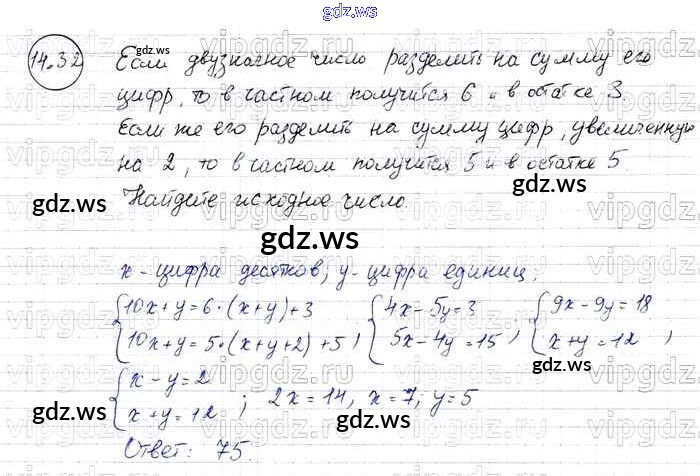 gdz.ws
14.32 Если двузначное число разделить на сумму его
цифр, то в частном получится 6 и в остатке 3.
Если же его разделить на сумму цифр, увеличенную
на 2, то в частном получится 5 и в остатке 5
Найдите исходное число.
gdz.ws
x - цифра десятков, y - цифра единиц;
{10x+y=6·(x+y)+3 {4x-5y=3 {9x-9y=18
{10x+y=5·(x+y+2)+5, {5x-4y=15, {x+y=12,
{x-y=2
{x+y=12; 2x=14, x=7, y=5
Ответ: 75.